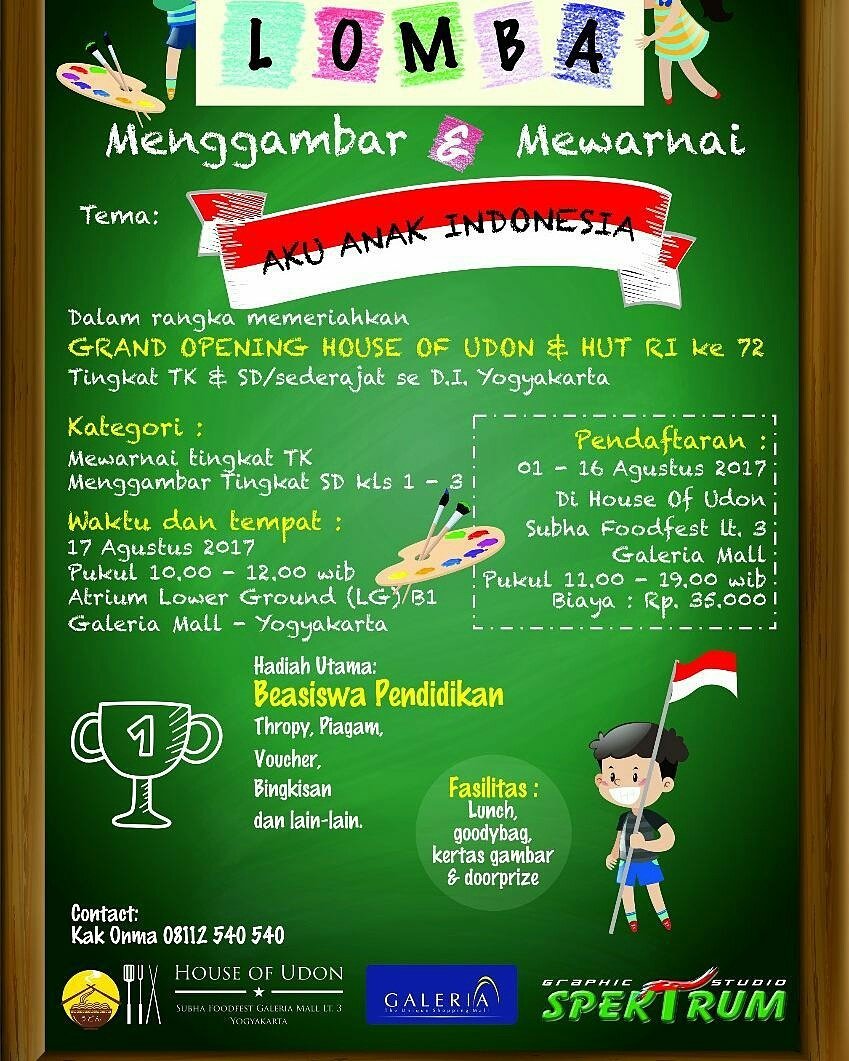 LOMBA
Menggambar & Mewarnai
Tema:
AKU ANAK INDONESIA
Dalam rangka memeriahkan
GRAND OPENING HOUSE OF UDON & HUT RI ke 72
Tingkat TK & SD/sederajat se D.I. Yogyakarta
Kategori :
Mewarnai tingkat TK
Menggambar Tingkat SD kls 1 - 3
Waktu dan tempat :
17 Agustus 2017
Pukul 10.00 - 12.00 wib
Atrium Lower Ground (LG)/B1
Galeria Mall - Yogyakarta
Pendaftaran :
01 - 16 Agustus 2017
Di House Of Udon
Subha Foodfest lt. 3
Galeria Mall
Pukul 11.00 - 19.00 wib
Biaya : Rp. 35.000
1
Hadiah Utama:
Beasiswa Pendidikan
Thropy, Piagam,
Voucher,
Bingkisan
dan lain-lain.
Fasilitas :
Lunch,
goodybag,
kertas gambar
& doorprize
Contact:
Kak Onma 08112 540 540
HOUSE OF UDON
SUBHA FOODFEST GALERIA MALL LT. 3
YOGYAKARTA
GALERIA
The Unique Shopping Mall
GRAPHIC STUDIO
SPEKTRUM